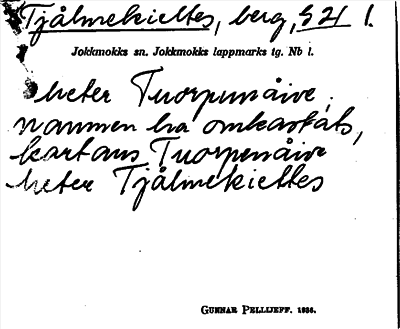 Tjålmekiettes, berg, S 21 l.
Jokkmokks sn. Jokkmokks lappmarks tg. Nb l.
heter Tuorpunåive;
namnen ha omkastats,
kartans Tuorpenåive
heter Tjålmekiettes
GUNNAR PELLIJEFF. 1936.